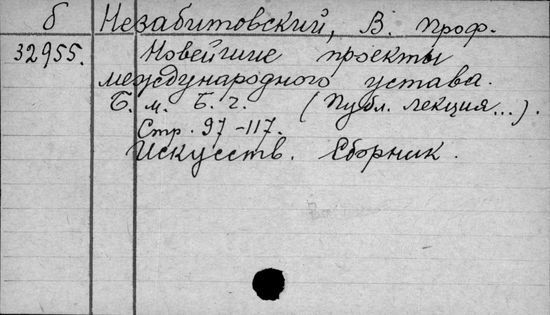 б Незабитовский, В. проф.
32955. Новейшие проекты
международного устава.
Б. м. Б. г. (Публ. лекция...).
Стр. 97-117.
Искусств. Сборник.